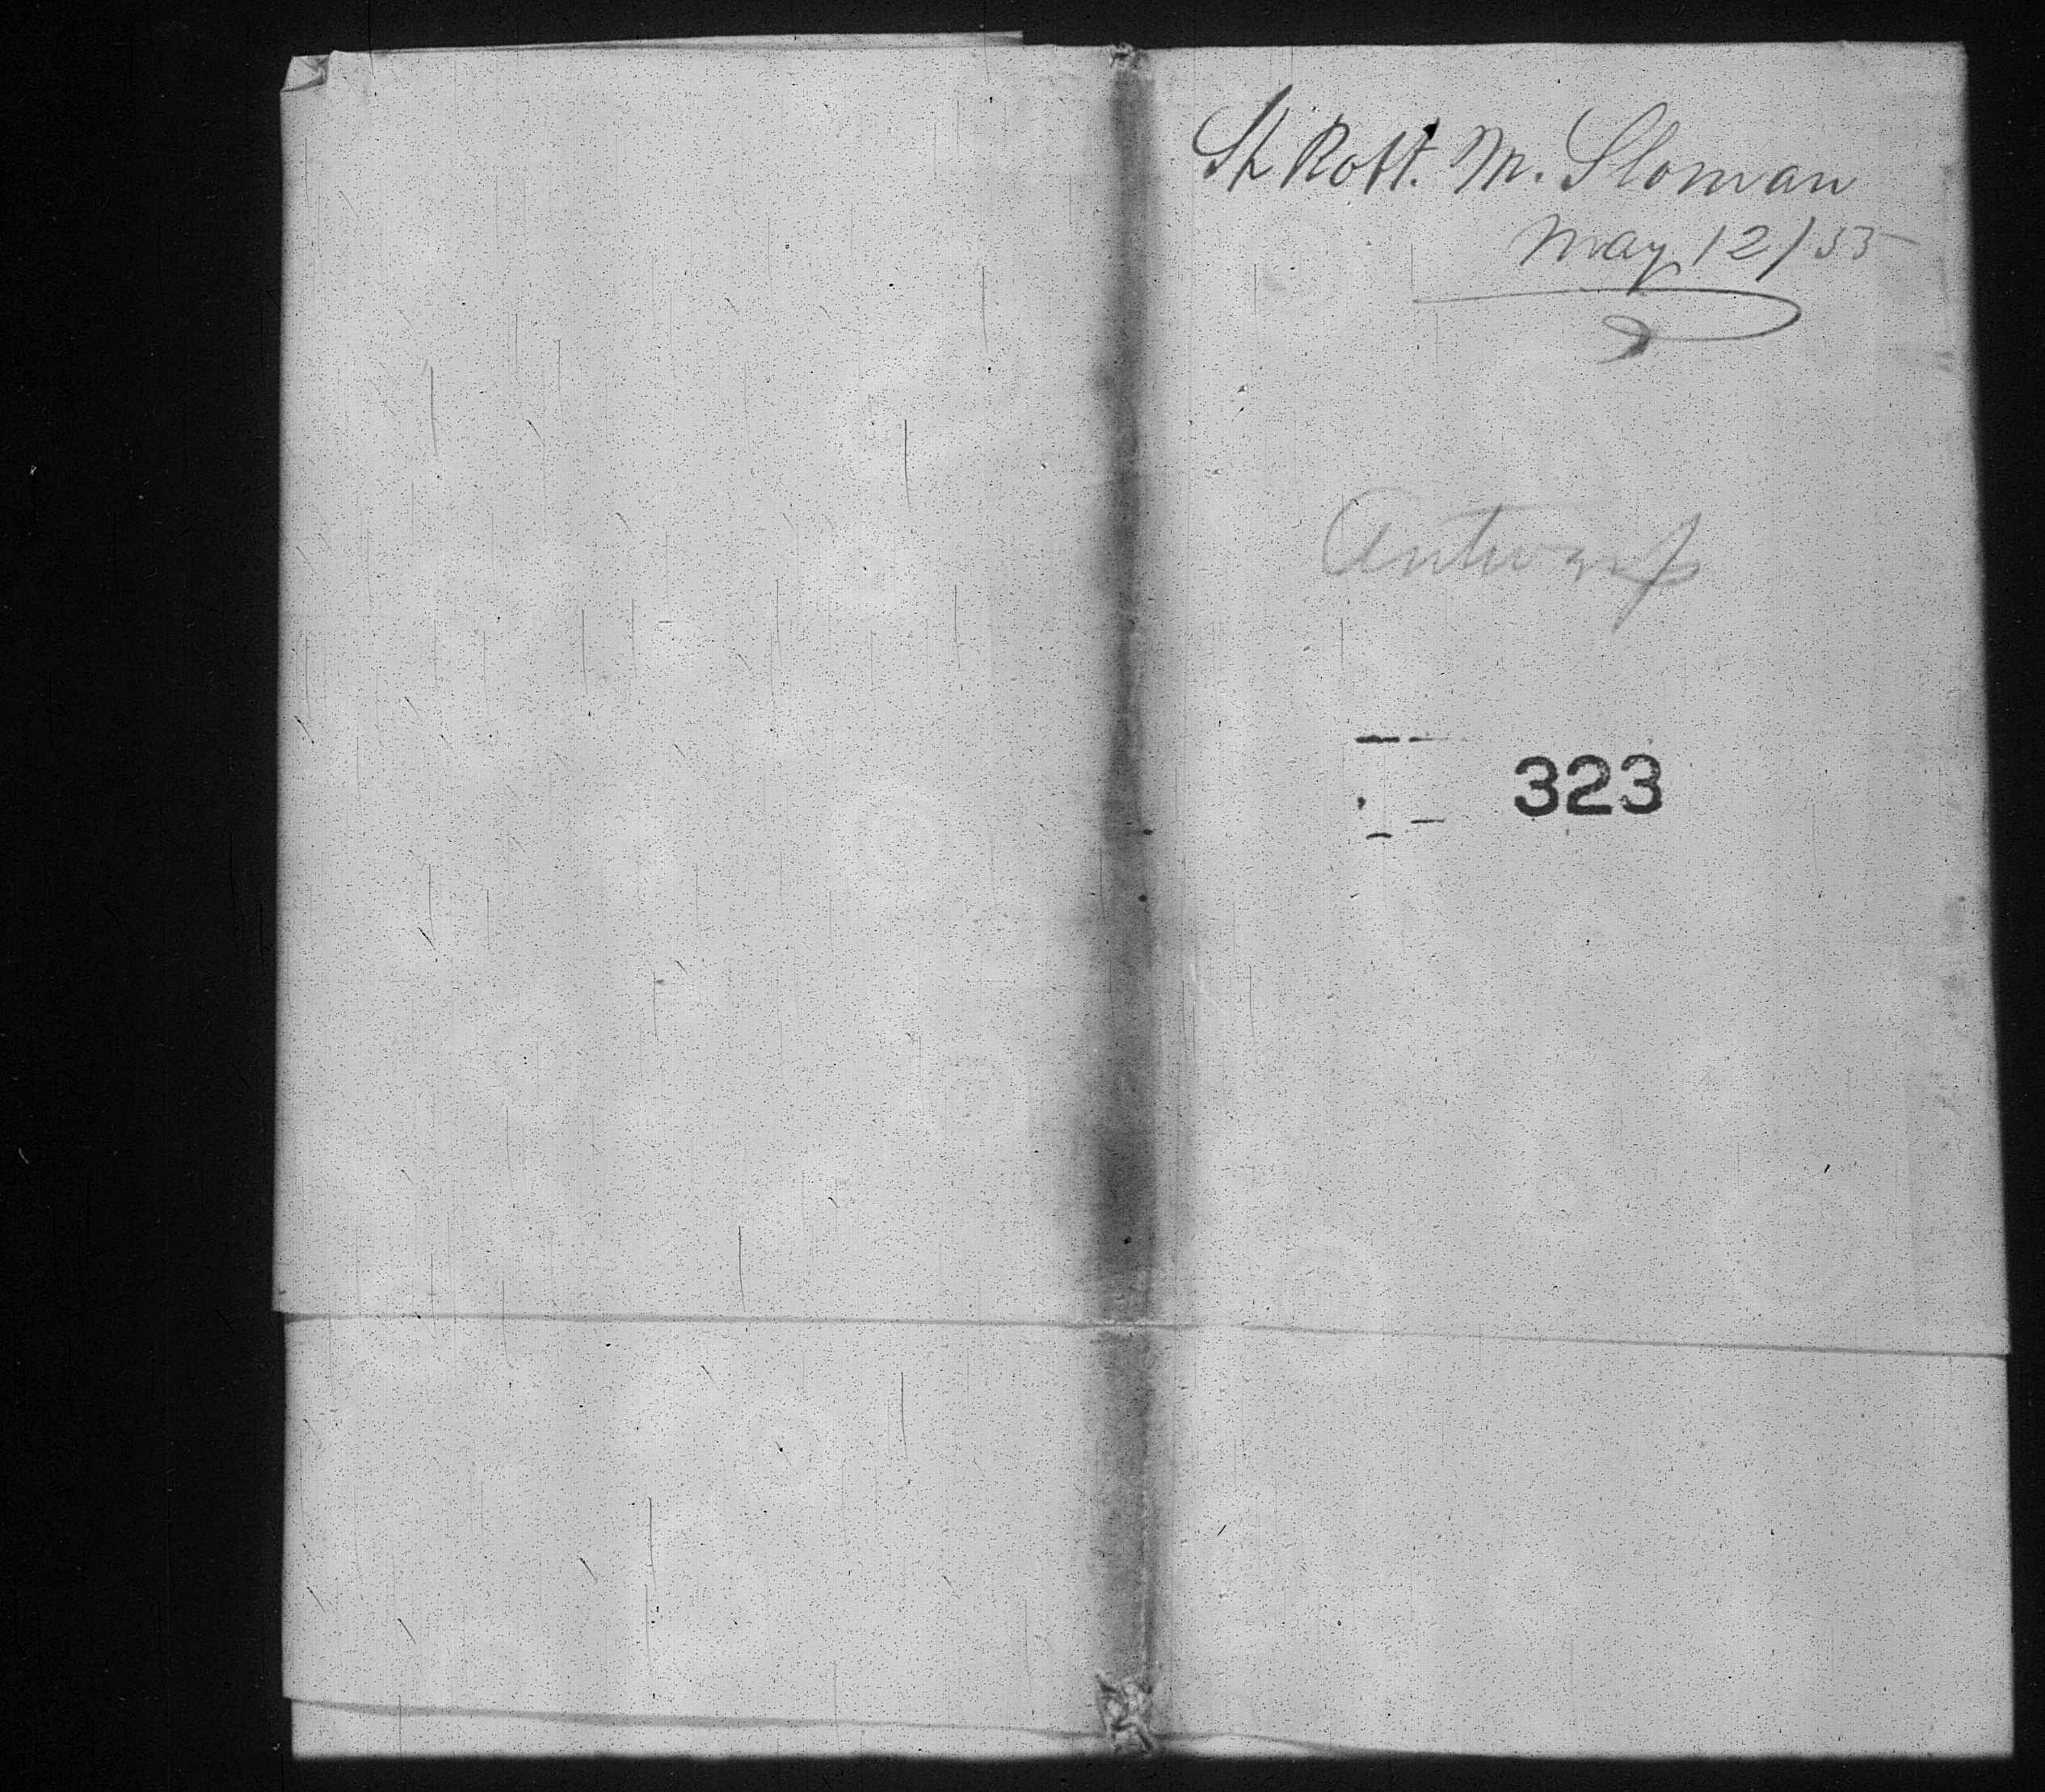 Sh Robt. M. Sloman
May 12/55
Antwerp
323